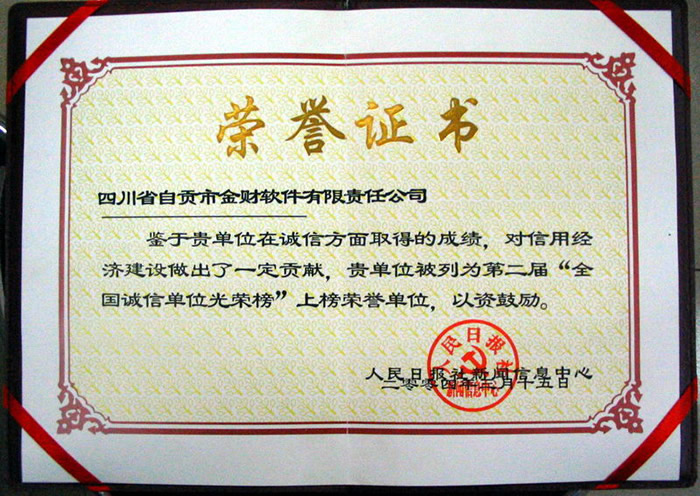 荣誉证书
四川省自贡市金财软件有限责任公司
鉴于贵单位在诚信方面取得的成绩，对信用经
济建设做出了一定贡献，贵单位被列为第二届“全
国诚信单位光荣榜”上榜荣誉单位，以资鼓励。
人民日报社
新闻信息中心
人民日报社新闻信息中心
二零零四年 月十五日